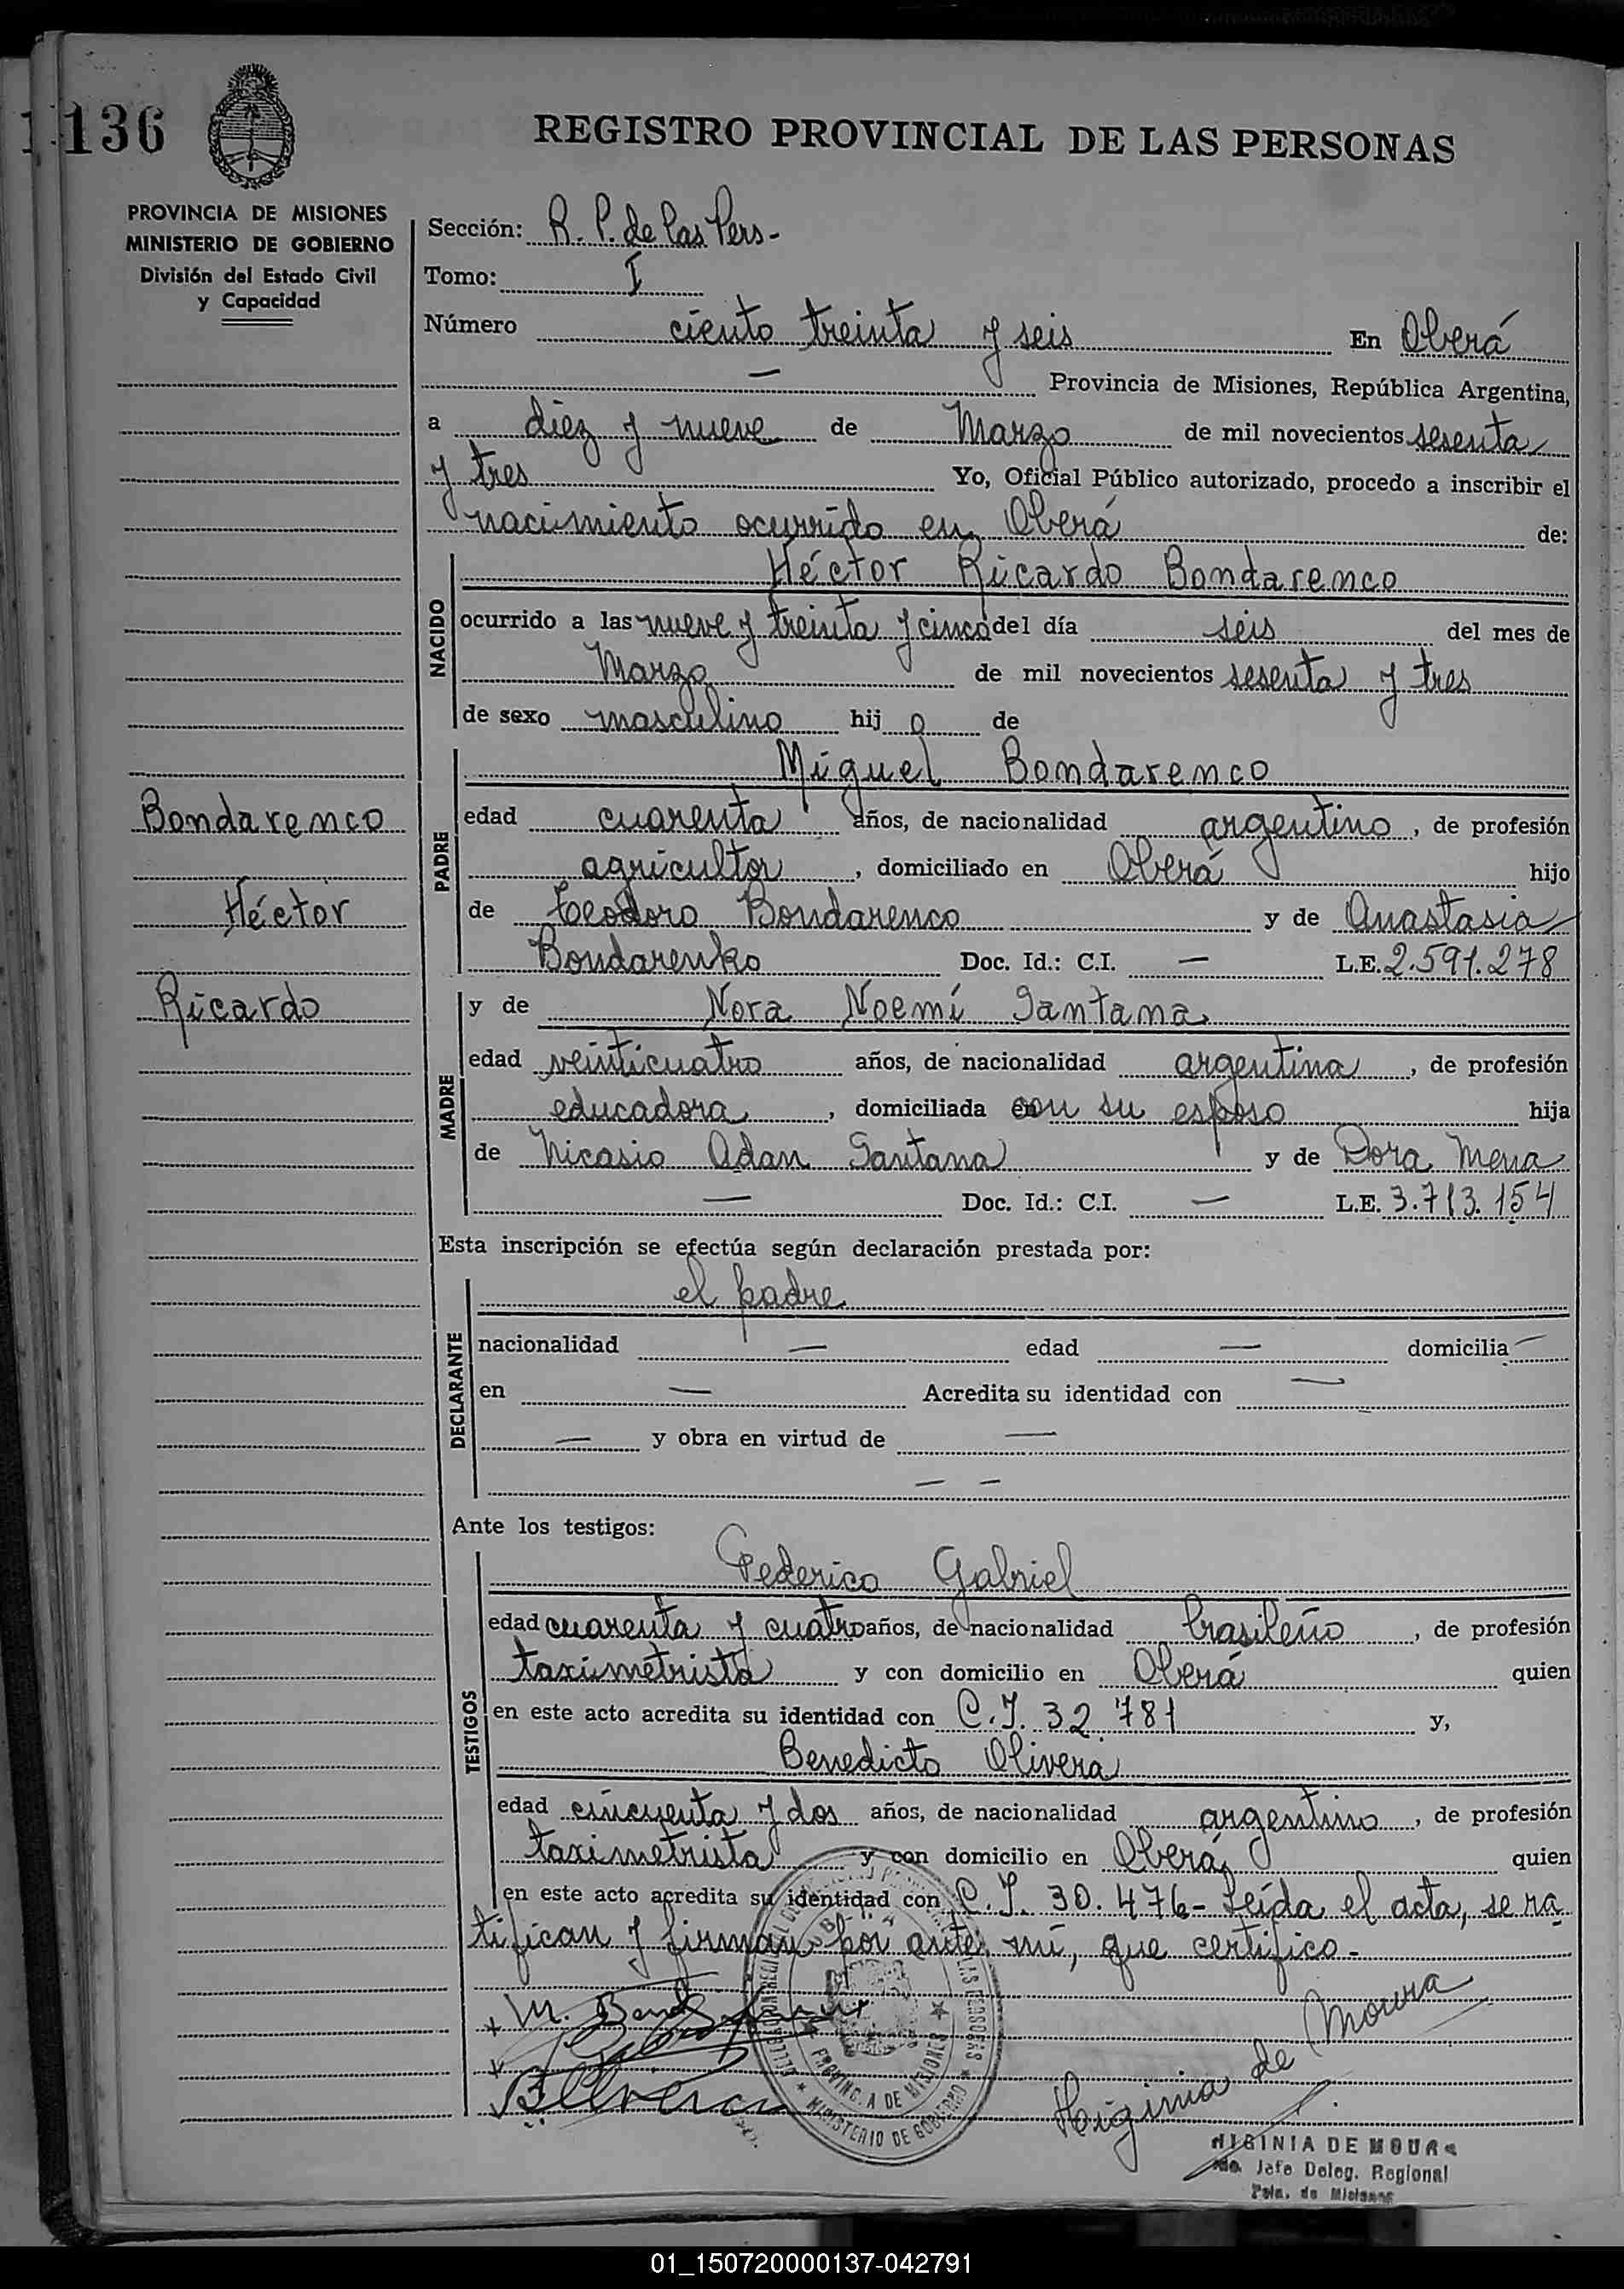 136
REGISTRO PROVINCIAL DE LAS PERSONAS
PROVINCIA DE MISIONES
MINISTERIO DE GOBIERNO
División del Estado Civil
y Capacidad
Sección: R. P. de las Pers-
Tomo: I
Número ciento treinta y seis En Oberá
— Provincia de Misiones, República Argentina,
a diez y nueve de Marzo de mil novecientos sesenta
y tres Yo, Oficial Público autorizado, procedo a inscribir el
nacimiento ocurrido en Oberá de:
NACIDO
Héctor Ricardo Bondarenco
ocurrido a las nueve y treinta y cinco del día seis del mes de
Marzo de mil novecientos sesenta y tres
de sexo masculino hijo de
PADRE
Miguel Bondarenco
Bondarenco
edad cuarenta años, de nacionalidad argentino, de profesión
agricultor, domiciliado en Oberá hijo
Héctor
de Teodoro Bondarenco y de Anastasia
Bondarenko Doc. Id.: C.I. — L.E. 2.591.278
Ricardo
MADRE
y de Nora Noemí Santana
edad veinticuatro años, de nacionalidad argentina, de profesión
educadora, domiciliada con su esposo hija
de Nicasio Adan Santana y de Dora Mena
— Doc. Id.: C.I. — L.E. 3.713.154
Esta inscripción se efectúa según declaración prestada por:
DECLARANTE
el padre
nacionalidad — edad — domicilia —
en — Acredita su identidad con —
— y obra en virtud de —
— —
Ante los testigos:
TESTIGOS
Federico Gabriel
edad cuarenta y cuatro años, de nacionalidad brasileño, de profesión
taximetrista y con domicilio en Oberá quien
en este acto acredita su identidad con C.I. 32 781 y,
Benedicto Olivera
edad cincuenta y dos años, de nacionalidad argentino, de profesión
taximetrista y con domicilio en Oberá quien
en este acto acredita su identidad con C.I. 30.476- Leída el acta, se ra
tifican y firman por ante mí, que certifico-
PROVINCIA DE MISIONES
MINISTERIO DE GOBIERNO
Higinia de Moura
HIGINIA DE MOURA
Jefe Deleg. Regional
Pcia. de Misiones
01_150720000137-042791